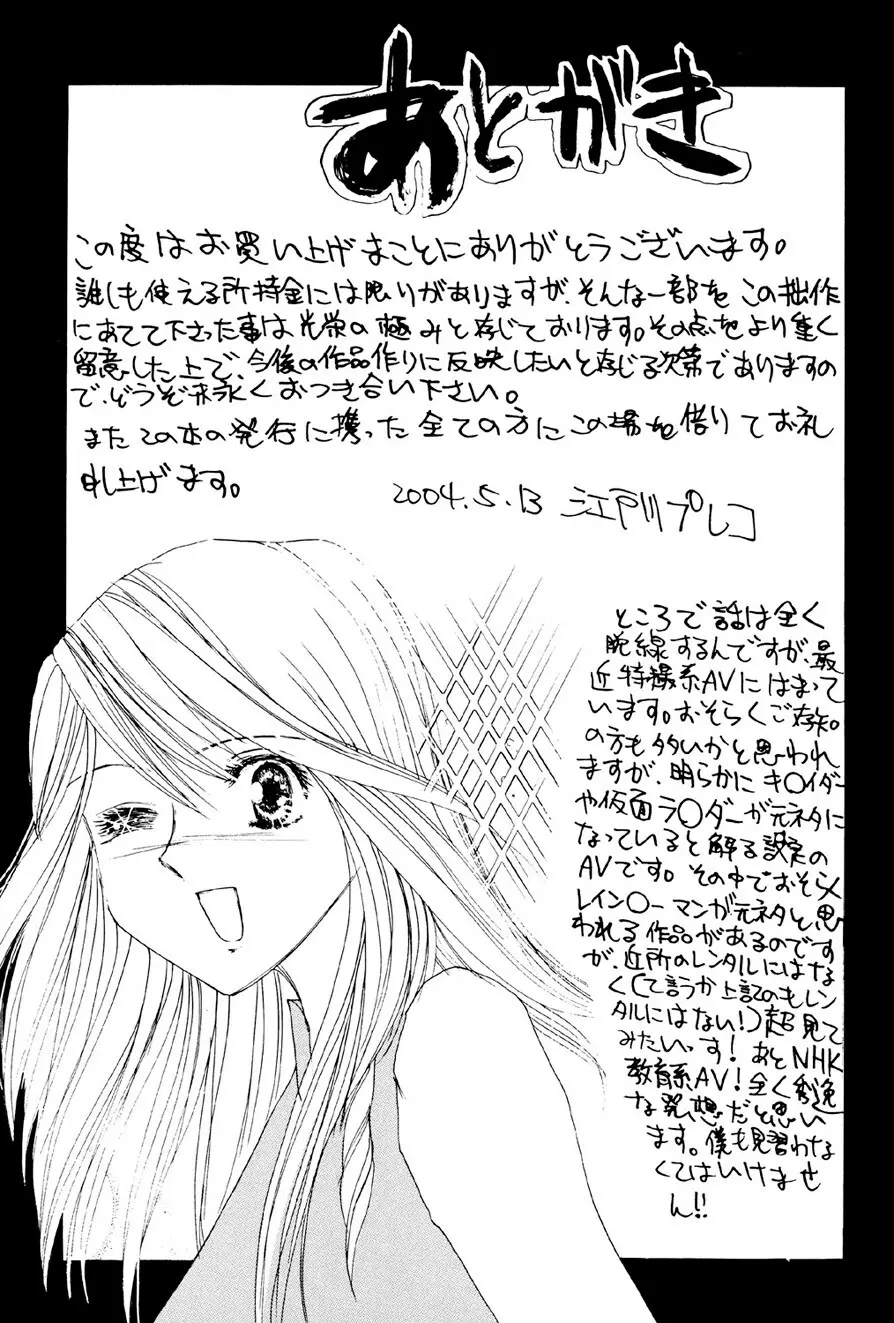 あとがき
この度はお買い上げまことにありがとうございます。
誰しも使える所持金には限りがありますが、そんな一部を この拙作
にあてて下さった事は光栄の極みと存じております。その点をより重く
留意した上で、今後の作品作りに反映したいと存じる次第でありますの
で、どうぞ末永くおつき合い下さい。
またこの本の発行に携った全ての方にこの場を借りてお礼
申し上げます。
2004.5.13 江戸川プレコ
ところで話は全く
脱線するんですが、最
近特撮系AVにはまって
います。おそらくご存知
の方も多いかと思われ
ますが、明らかにキ〇イダー
や仮面ラ〇ダーが元ネタに
なっていると解る設定の
AVです。その中でおそらく
レイン〇ーマンが元ネタと思
われる作品があるのです
が、近所のレンタルにはな
く(て言うか上記のもレン
タルにはない!)超見て
みたいっす! あとNHK
教育系AV! 全く秀逸
な発想だと思い
ます。僕も見習わな
くてはいけませ
ん!!